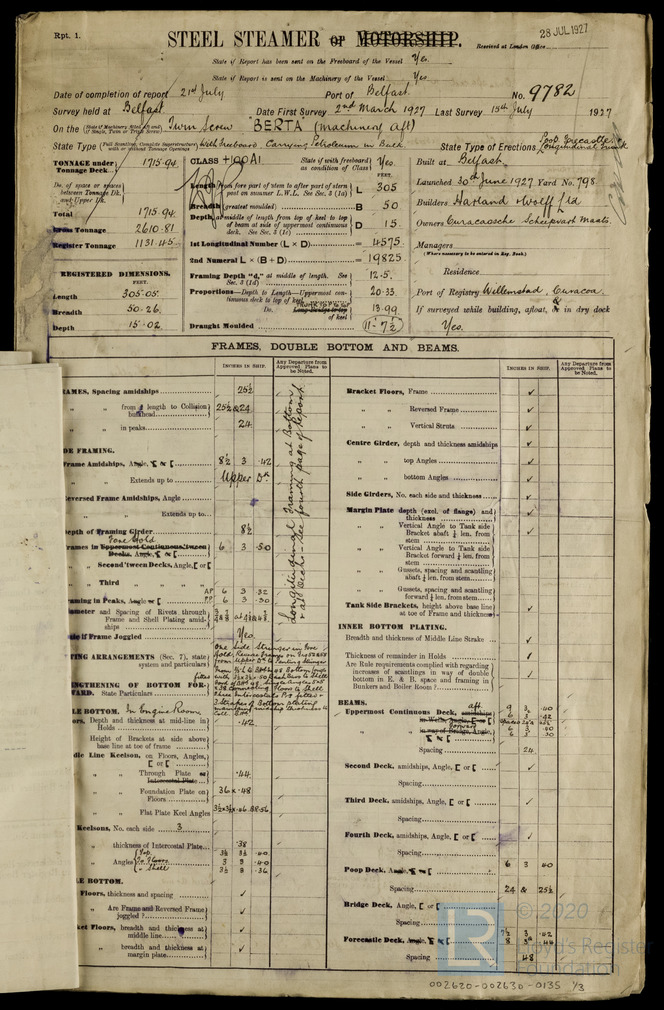 Rpt. 1.
28 JUL 1927
STEEL STEAMER or MOTORSHIP.
Received at London Office
State if Report has been sent on the Freeboard of the Vessel Yes
State if Report is sent on the Machinery of the Vessel Yes
Date of completion of report 21st July Port of Belfast No. 9782
Survey held at Belfast Date First Survey 2nd March 1927 Last Survey 15th July 1927
On the Twin Screw "BERTA" (machinery aft)
State Type with Freeboard Carrying Petroleum in Bulk State Type of Erections Poop, Forecastle &
Longitudinal Trunk
TONNAGE under Tonnage Deck 1715.94
Do. of space or spaces between Tonnage Dk. and Upper Dk.
Total 1715.94
Gross Tonnage 2610.81
Register Tonnage 1131.45
REGISTERED DIMENSIONS.
FEET.
Length 305.05
Breadth 50.26
Depth 15.02
CLASS +100A1 State if with freeboard as condition of Class Yes.
FEET.
Length from fore part of stem to after part of stern post on summer L.W.L. See Sec. 3 (1a) L 305
Breadth (greatest moulded) B 50
Depth, at middle of length from top of keel to top of beam at side of uppermost continuous deck. See Sec. 3 (1c) D 15
1st Longitudinal Number (L × D) = 4575
2nd Numeral L × (B + D) = 19825
Framing Depth "d," at middle of length. See Sec. 3 (1d) 12.5
Proportions—Depth to Length—Uppermost continuous deck to top of keel 20.33
Do. Long Bridge to top of keel 13.99
Draught Moulded 11-7½
Built at Belfast
Launched 30th June 1927 Yard No. 798
Builders Harland & Wolff Ltd
Owners Curacaosche Scheepvart Maats.
Managers
(Where necessary to be entered in Reg. Book.)
Residence
Port of Registry Willemstad, Curacoa
If surveyed while building, afloat, or in dry dock
Yes.
FRAMES, DOUBLE BOTTOM AND BEAMS.
INCHES IN SHIP.
Any Departure from Approved Plans to be Noted.
RAMES, Spacing amidships 25½
" " from ⅗ length to Collision bulkhead 25½ & 24
" " in peaks 24
DE FRAMING.
Frame Amidships, Angle, 8½ 3 .42
" " Extends up to Upper Dk
Reversed Frame Amidships, Angle
" " Extends up to
Depth of Framing Girder 8½
Fore Hold
Frames in Uppermost Continuous 'tween Decks, Angle, 6 3 .50
" " Second 'tween Decks, Angle, [ or [
" " Third " "
Framing in Peaks, Angle or [ AP 6 3 .32
FP 6 3 .30
ameter and Spacing of Rivets through Frame and Shell Plating amidships
ate if Frame Joggled Yes.
Longitudinal framing at Bottom & at Decks - See fourth page of Report
TING ARRANGEMENTS (Sec. 7), state system and particulars
NGTHENING OF BOTTOM FORWARD. State Particulars
LE BOTTOM. In Engine Room
ors, Depth and thickness at mid-line in Holds .42
Height of Brackets at side above base line at toe of frame
dle Line Keelson, on Floors, Angles, [ or [
" " Through Plate or Intercostal Plate .44
" " Foundation Plate on Floors 36 × .48
" " Flat Plate Keel Angles
Keelsons, No. each side 3
" thickness of Intercostal Plate .38
" Angles Top 3½ 3½ .40
To Floors 3 3 .40
" Shell 3½ 3 .36
LE BOTTOM.
Floors, thickness and spacing ✓
" Are Frame and Reversed Frame joggled? ✓
ket Floors, breadth and thickness at middle line ✓
" breadth and thickness at margin plate ✓
INCHES IN SHIP.
Any Departure from Approved Plans to be Noted.
Bracket Floors, Frame ✓
" " Reversed Frame ✓
" " Vertical Struts ✓
Centre Girder, depth and thickness amidships ✓
" " top Angles ✓
" " bottom Angles ✓
Side Girders, No. each side and thickness ✓
Margin Plate depth (excl. of flange) and thickness ✓
" " Vertical Angle to Tank side Bracket abaft ¼ len. from stem ✓
" " Vertical Angle to Tank side Bracket forward ¼ len. from stem
" " Gussets, spacing and scantling abaft ¼ len. from stem
" " Gussets, spacing and scantling forward ¼ len. from stem
Tank Side Brackets, height above base line at toe of Frame and thickness ✓
INNER BOTTOM PLATING.
Breadth and thickness of Middle Line Strake ✓
Thickness of remainder in Holds ✓
Are Rule requirements complied with regarding increases of scantlings in way of double bottom in E. & B. space and framing in Bunkers and Boiler Room? ✓
BEAMS.
Uppermost Continuous Deck, amidships aft
in Wells, Angle, [ or [
" " in way of Bridge, Angle, forward
Spacing 24
Second Deck, amidships, Angle, [ or [ ✓
Spacing
Third Deck, amidships, Angle, [ or [ ✓
Spacing
Fourth Deck, amidships, Angle, [ or [ ✓
Spacing
Poop Deck, Angle, 6 3 .40
Spacing 24 & 25½
Bridge Deck, Angle, [ or [ ✓
Spacing
Forecastle Deck, Angle, 7½ 3 .42
8 3 .44
Spacing 48
LR © 2020
Lloyd's Register
Foundation
002620-002630-0135 1/3